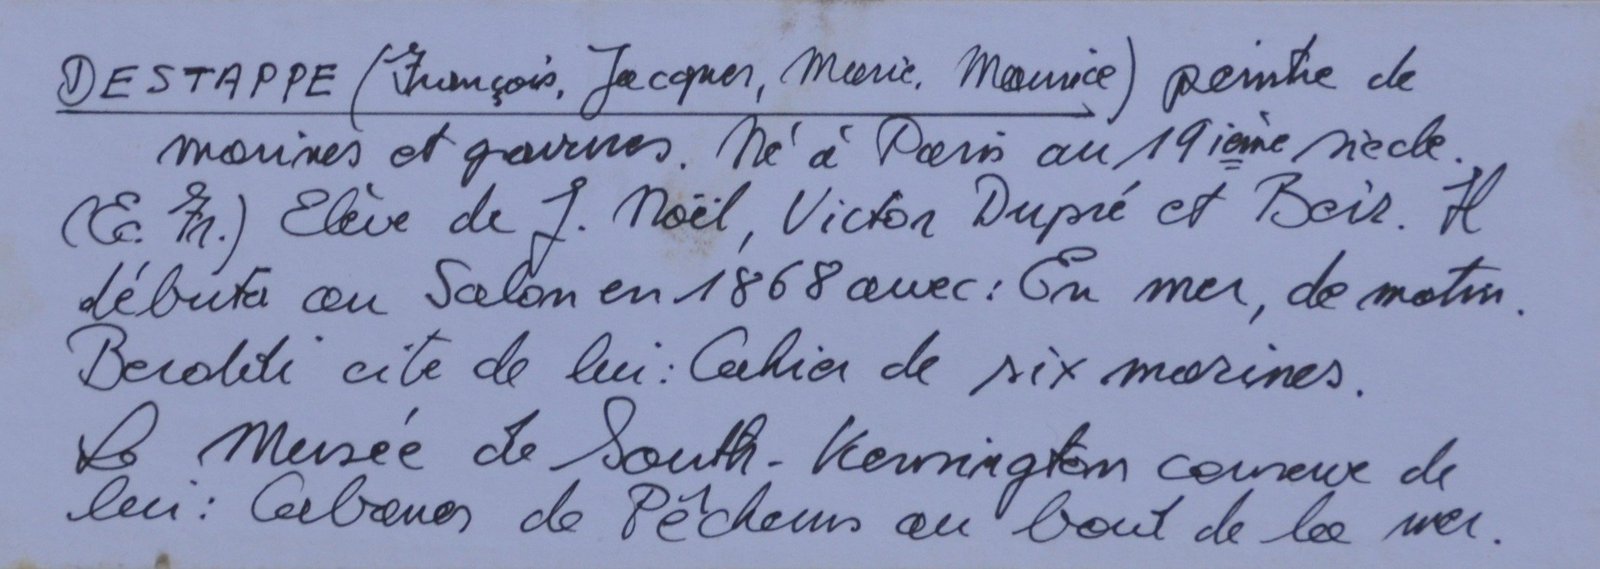 DESTAPPE (François, Jacques, Marie, Maurice) peintre de
marines et graveur. Né à Paris au 19ième siècle.
(Ec. Fr.) Elève de J. Noël, Victor Dupré et Boix. Il
débuta au Salon en 1868 avec: En mer, de matin.
Beraldi cite de lui: Cahier de six marines.
Le Musée de South-Kensington conserve de
lui: Cabanes de Pêcheurs au bout de la mer.